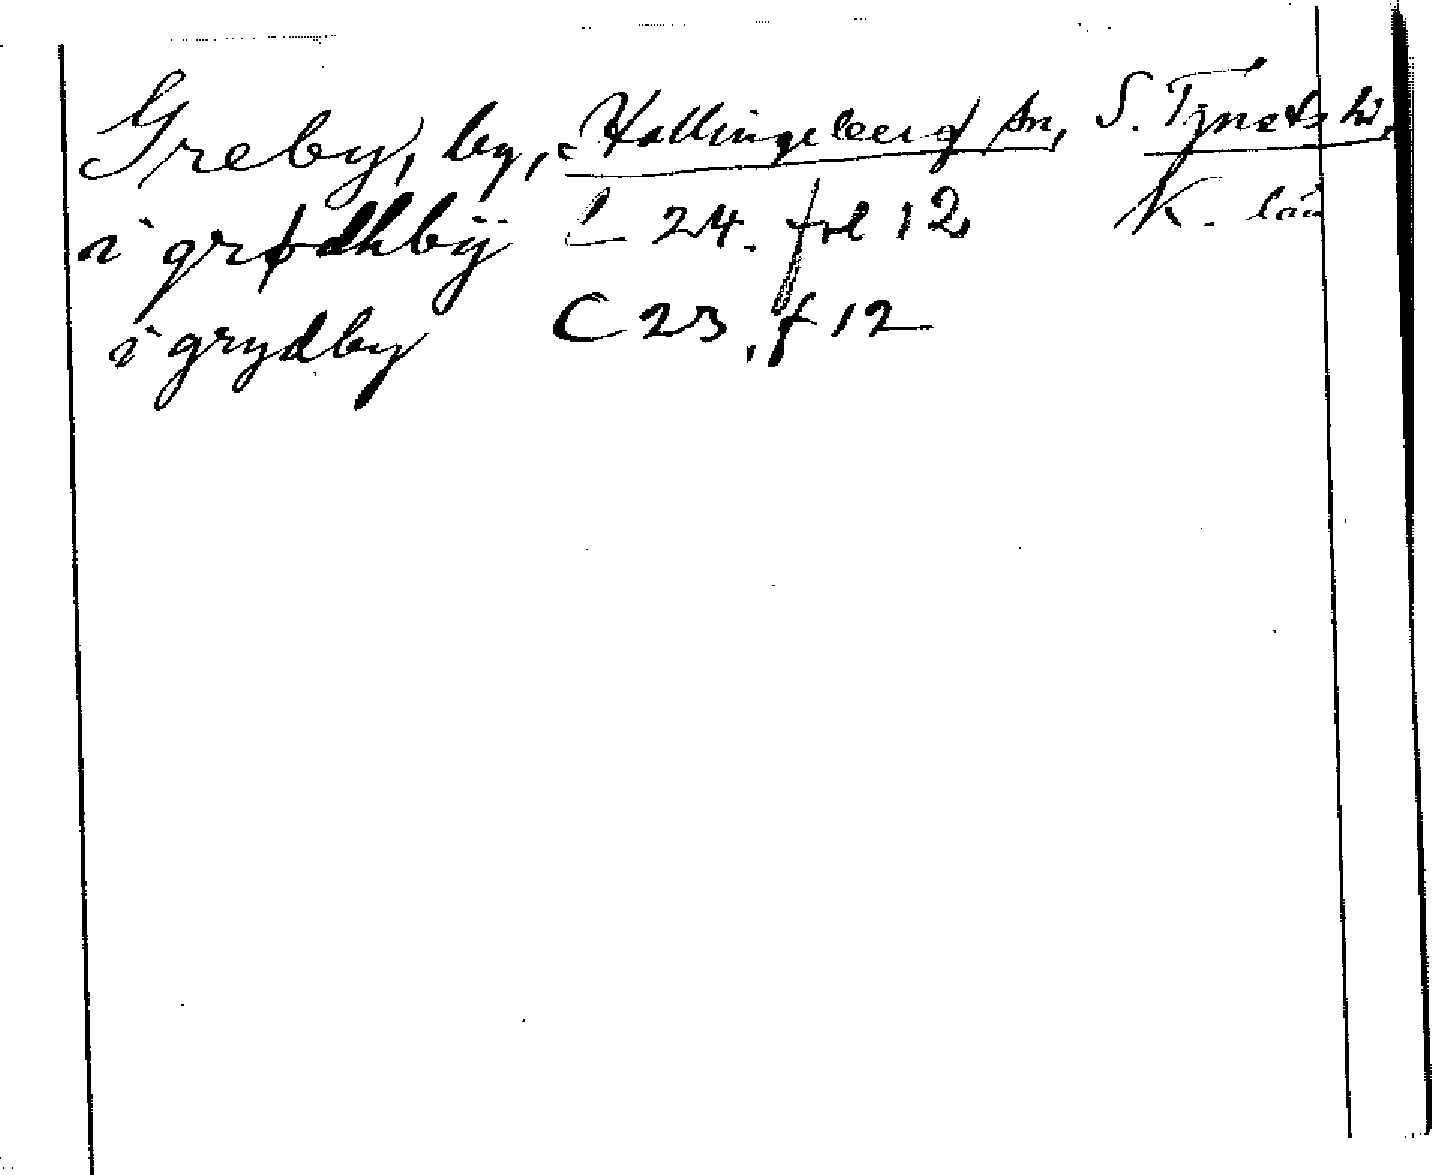 Greby, by, Hallingeberg sn, S. Tjusts hd,
i grødhbÿ C 24. fol 12 K. län
i grydby C 23, f 12